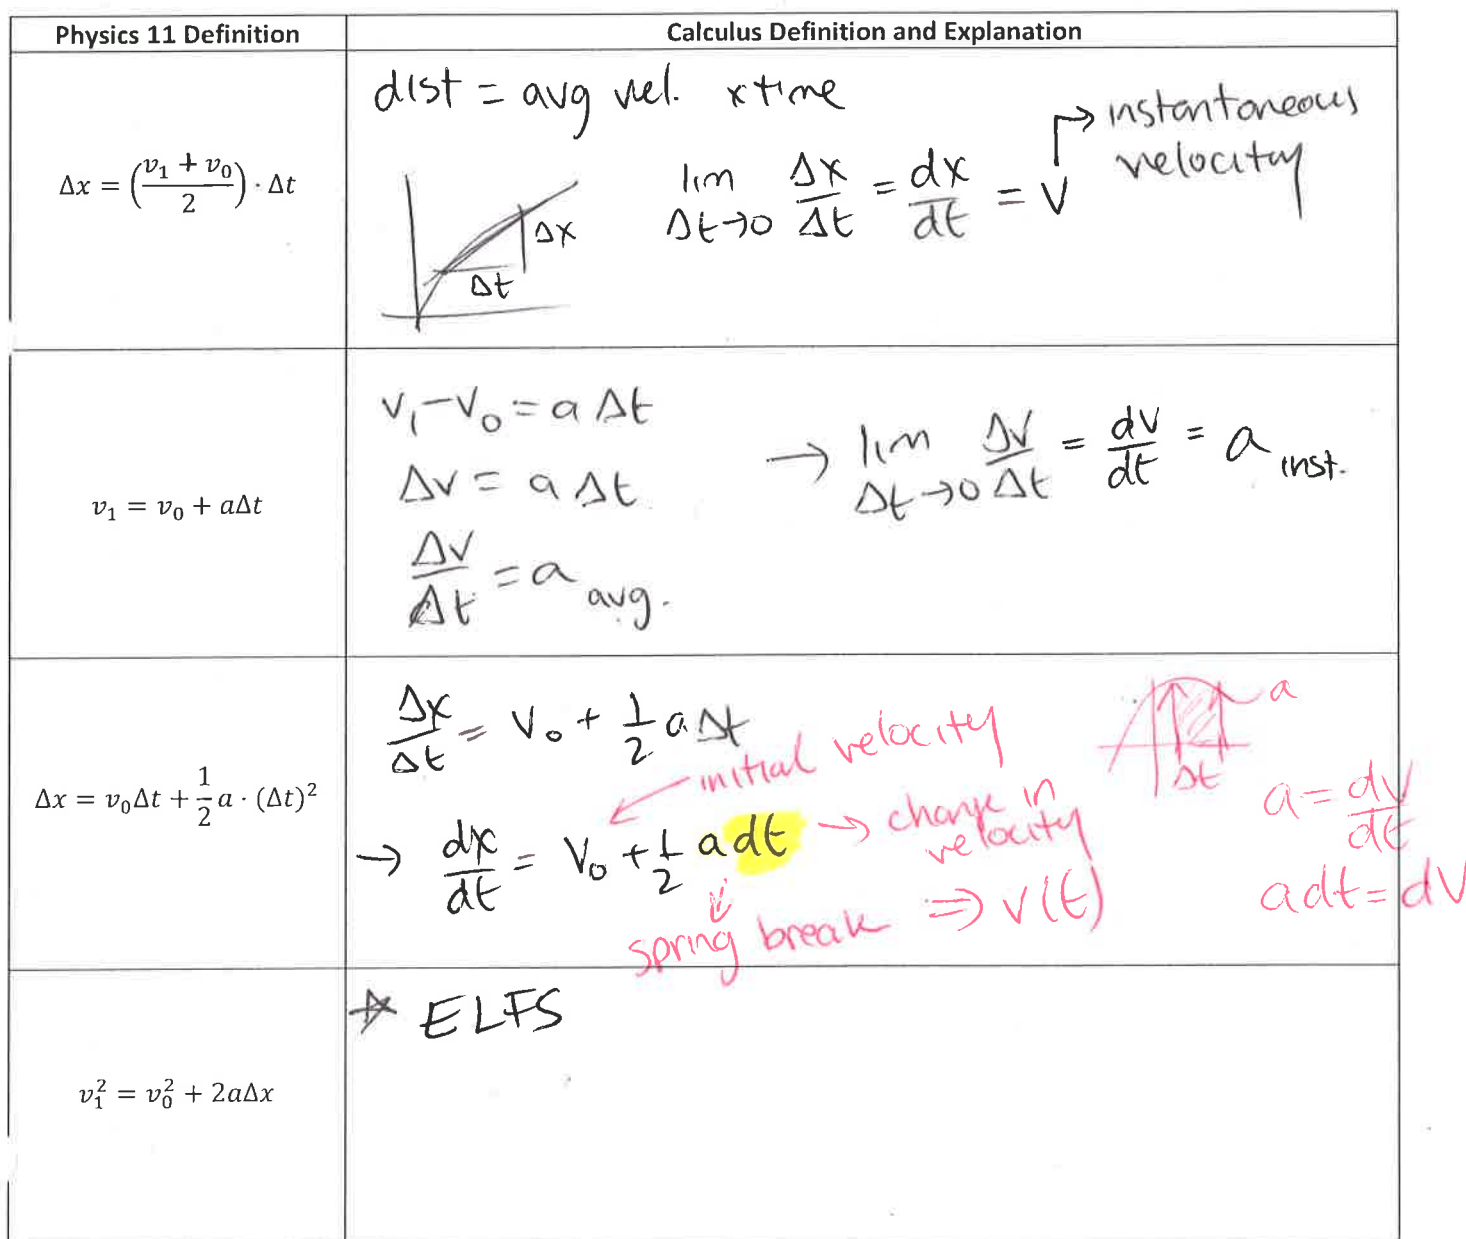 Physics 11 Definition
Calculus Definition and Explanation
Δx = (v₁ + v₀ / 2) · Δt
dist = avg vel. x time
lim Δt→0 Δx/Δt = dx/dt = V
instantaneous
velocity
Δx
Δt
v₁ = v₀ + aΔt
V₁ - V₀ = a Δt
ΔV = a Δt
ΔV/Δt = a avg.
→ lim Δt→0 ΔV/Δt = dV/dt = a inst.
Δx = v₀Δt + 1/2 a · (Δt)²
Δx/Δt = V₀ + 1/2 a Δt
initial velocity
→ dx/dt = V₀ + 1/2 a dt → change in
velocity
spring break ⇒ V(t)
a
Δt
a = dV/dt
a dt = dV
v₁² = v₀² + 2aΔx
☆ ELFS